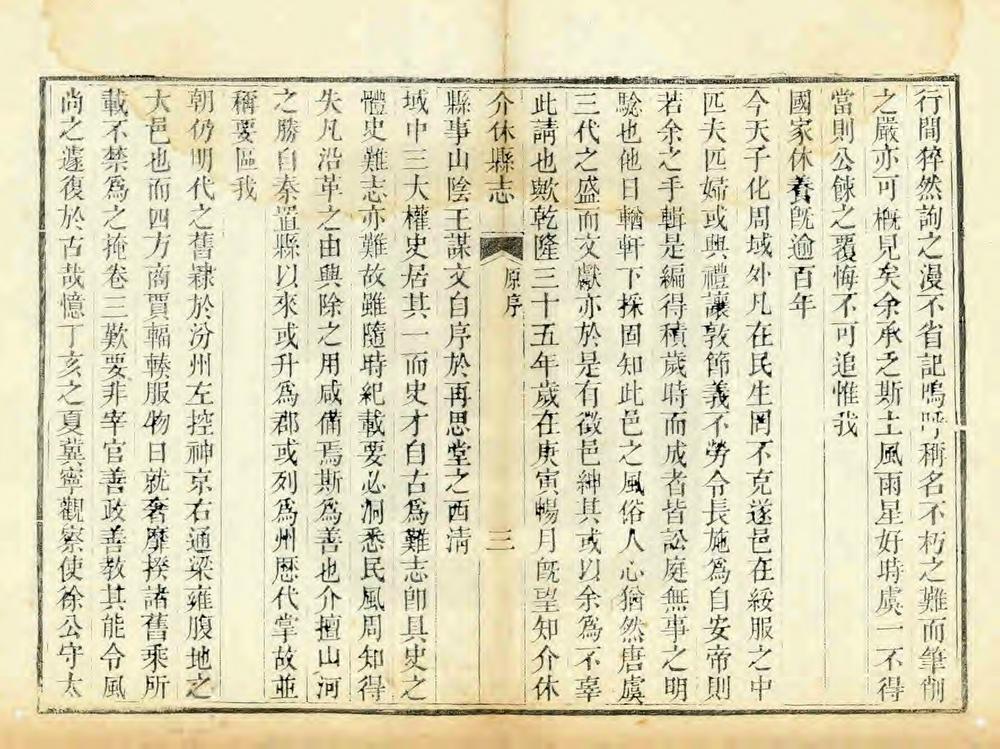 行間猝然詢之漫不省記嗚呼稱名不朽之難而筆削
之嚴亦可槪見矣余承乏斯土風雨星好時虞一不得
當則公餗之覆悔不可追惟我
國家休養旣逾百年
今天子化周域外凡在民生罔不克遂邑在綏服之中
匹夫匹婦或興禮讓敦節義不勞令長施爲自安帝則
若余之手輯是編得積歲時而成者皆訟庭無事之明
驗也他日輶軒下採固知此邑之風俗人心猶然唐虞
三代之盛而文獻亦於是有徵邑紳其或以余爲不辜
此請也歟乾隆三十五年歲在庚寅暢月旣望知介休
介休縣志
原序
三
縣事山陰王謀文自序於再思堂之西淸
域中三大權史居其一而史才自古爲難志卽具史之
體史難志亦難故雖隨時紀載要必洞悉民風周知得
失凡沿革之由興除之用咸備焉斯爲善也介擅山河
之勝自秦置縣以來或升爲郡或列爲州歷代掌故並
稱要區我
朝仍明代之舊隸於汾州左控神京右通梁雍腹地之
大邑也而四方商賈輻輳服物日就奢靡揆諸舊乘所
載不禁爲之掩卷三歎要非宰官善政善教其能令風
尚之遽復於古哉憶丁亥之夏冀寧觀察使徐公守太